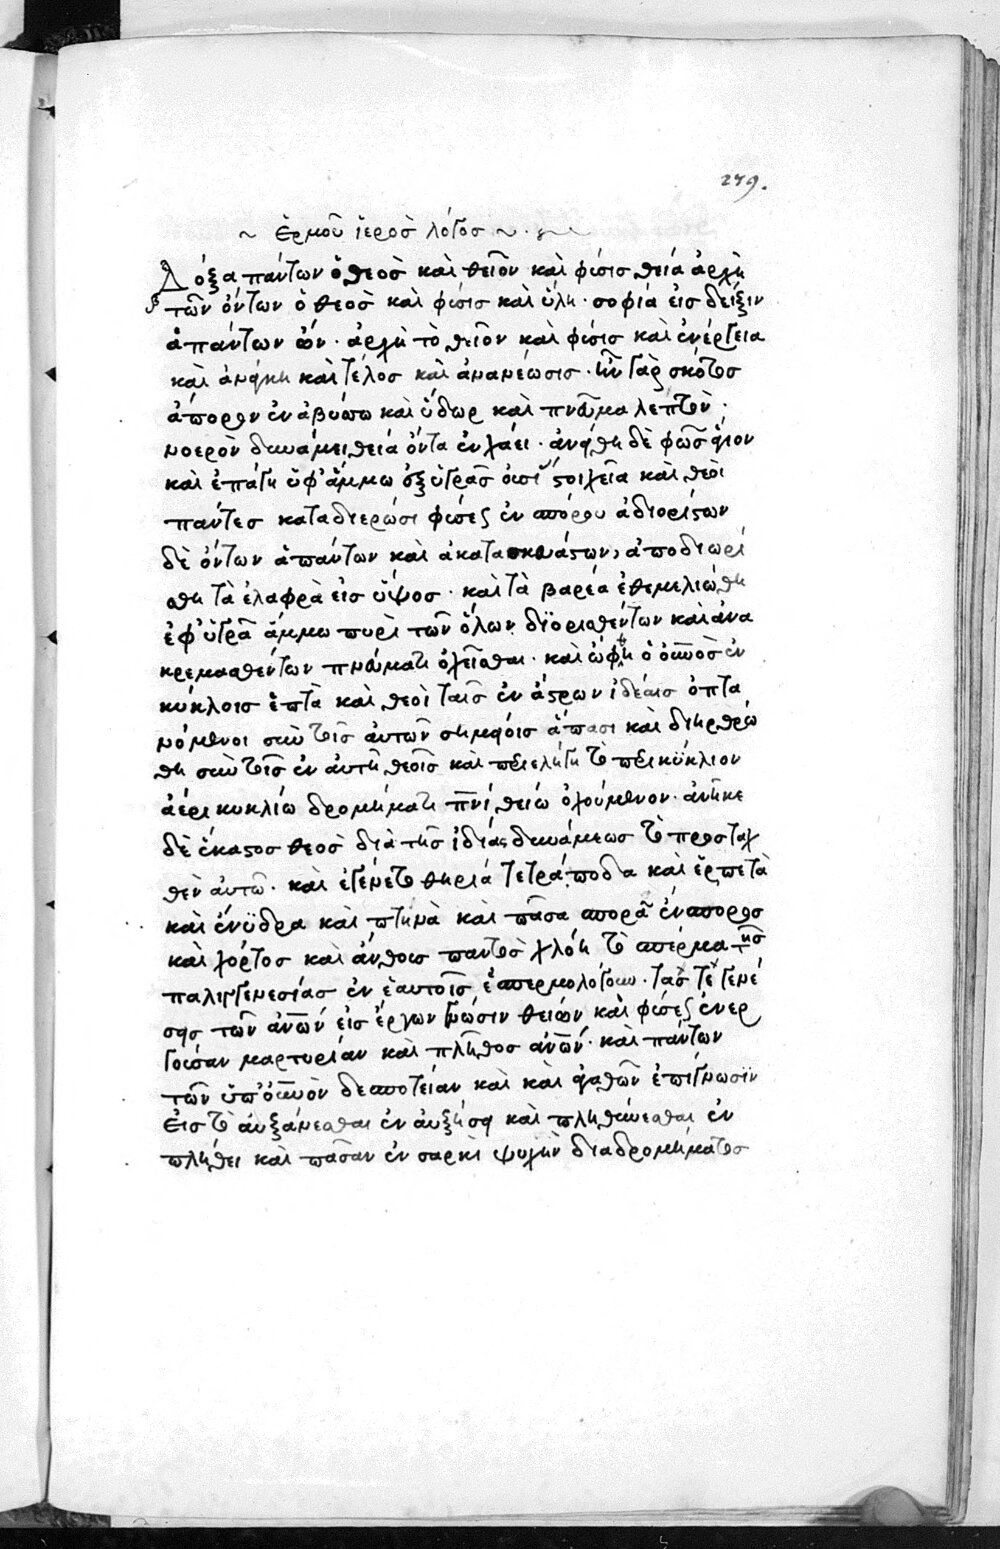 279.
~ Ἑρμοῦ ἱερὸσ λόγοσ ~ . γ ~
Δόξα πάντων ὁ θεὸσ καὶ θεῖον καὶ φύσισ θεία ἀρχὴ
τῶν ὄντων ὁ θεὸσ καὶ φύσισ καὶ ὕλη · σοφία εἰσ δεῖξιν
ἁπάντων ὧν · ἀρχὴ τὸ θεῖον καὶ φύσισ καὶ ἐνέργεια
καὶ ἀνάγκη καὶ τέλοσ καὶ ἀνανέωσισ · ἦν γὰρ σκότοσ
ἄπορον ἐν ἀβύσσω καὶ ὕδωρ καὶ πνεῦμα λεπτὸν ·
νοερὸν δυνάμει θεία ὄντα ἐν χάει · ἀνήχθη δὲ φῶσ ἅγιον
καὶ ἐπάγη ὑφ' ἄμμω ἐξ ὑγρᾶσ οὐσί στοιχεῖα καὶ θεοὶ
πάντεσ καταδιερῶσι φύσεσ ἐν σπόρου ἀδιορίστων
δὲ ὄντων ἁπάντων καὶ ἀκατασκευάστων, ἀποδιωρί
σθη τὰ ἐλαφρὰ εἰσ ὕψοσ · καὶ τὰ βαρέα ἐθεμελιώθη
ἐφ' ὑγρᾶ ἄμμω πυρὶ τῶν ὅλων διορισθέντων καὶ ἀνα
κρεμασθέντων πνεύματι ὀχεῖσθαι · καὶ ὤφθη ὁ οὐνὸσ ἐν
κύκλοισ ἑπτὰ καὶ θεοὶ ταῖσ ἐν ἄστρων ἰδέαισ ὀπτα
νόμενοι σὺν τοῖσ αὐτῶν σημείοισ ἅπασι καὶ διηρθρώ
θη σὺν τοῖσ ἐν αὐτῆ θεοῖσ καὶ περιελήγη τὸ περικύκλιον
ἀέρι κυκλίω δρομήματι πνι θείω ὀχούμενον · ἀνῆκε
δὲ ἕκαστοσ θεὸσ διὰ τῆσ ἰδίασ δυνάμεωσ τὸ προσταχ
θὲν αὐτῶ · καὶ ἐγένετο θηρία τετράποδα καὶ ἑρπετὰ
καὶ ἔνυδρα καὶ πτηνὰ καὶ πᾶσα σπορᾶ ἔνσποροσ
καὶ χόρτοσ καὶ ἄνθουσ παντὸσ χλόη τὸ σπέρμα τῆσ
παλιγγενεσίασ ἐν ἑαυτοῖσ ἐσπερμολόγουν · τάσ τε γενέ
σεισ τῶν ἀνῶν εἰσ ἔργων γνῶσιν θείων καὶ φύσεσ ἐνερ
γοῦσαν μαρτυρίαν καὶ πλῆθοσ ἀνῶν · καὶ πάντων
τῶν ὑπ' οὐνὸν δεσποτείαν καὶ καὶ ἀγαθῶν ἐπίγνωσϊν
εἰσ τὸ αὐξάνεσθαι ἐν αὐξήσει καὶ πληθύνεσθαι ἐν
πλήθει καὶ πᾶσαν ἐν σαρκὶ ψυχὴν διαδρομήματοσ